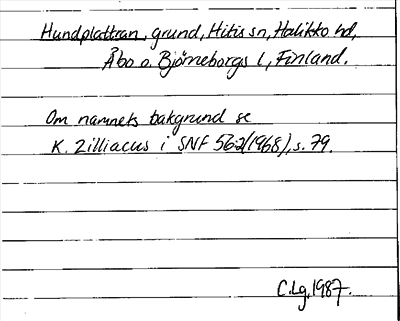 Hundplattan, grund, Hitis sn, Halikko hd,
Åbo o. Björneborgs l, Finland.
Om namnets bakgrund se
K. Zilliacus i SNF 56:2(1968), s. 79.
C.Lg. 1987.